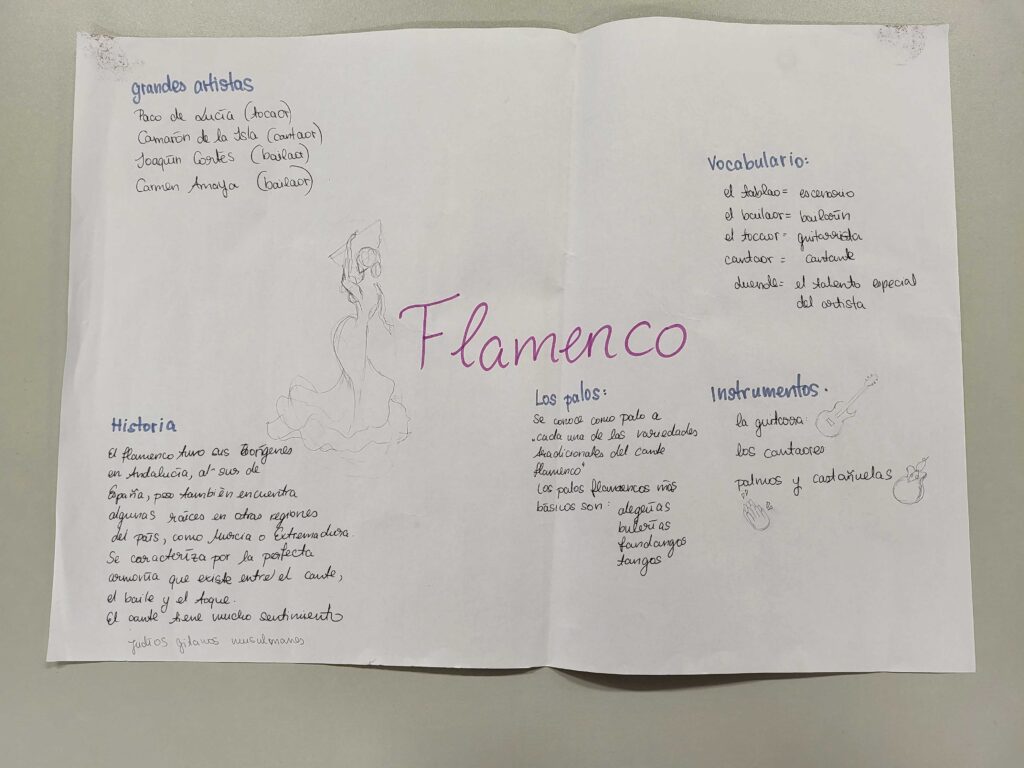 grandes artistas
Paco de Lucía (tocaor)
Camarón de la Isla (cantaor)
Joaquín Cortés (bailaor)
Carmen Amaya (bailaor)
Flamenco
Vocabulario:
el tablao = escenario
el bailaor = bailarín
el tocaor = guitarrista
cantaor = cantante
duende = el talento especial
del artista
Historia
El flamenco tuvo sus orígenes
en Andalucía, al sur de
España, pero también encuentra
algunas raíces en otras regiones
del país, como Murcia o Extremadura.
Se caracteriza por la perfecta
armonía que existe entre el cante,
el baile y el toque.
El cante tiene mucho sentimiento
judíos gitanos musulmanes
Los palos:
Se conoce como palo a
"cada una de las variedades
tradicionales del cante
flamenco"
Los palos flamencos más
básicos son:
alegrías
bulerías
fandangos
tangos
Instrumentos.
la guitarra
los cantaores
palmas y castañuelas